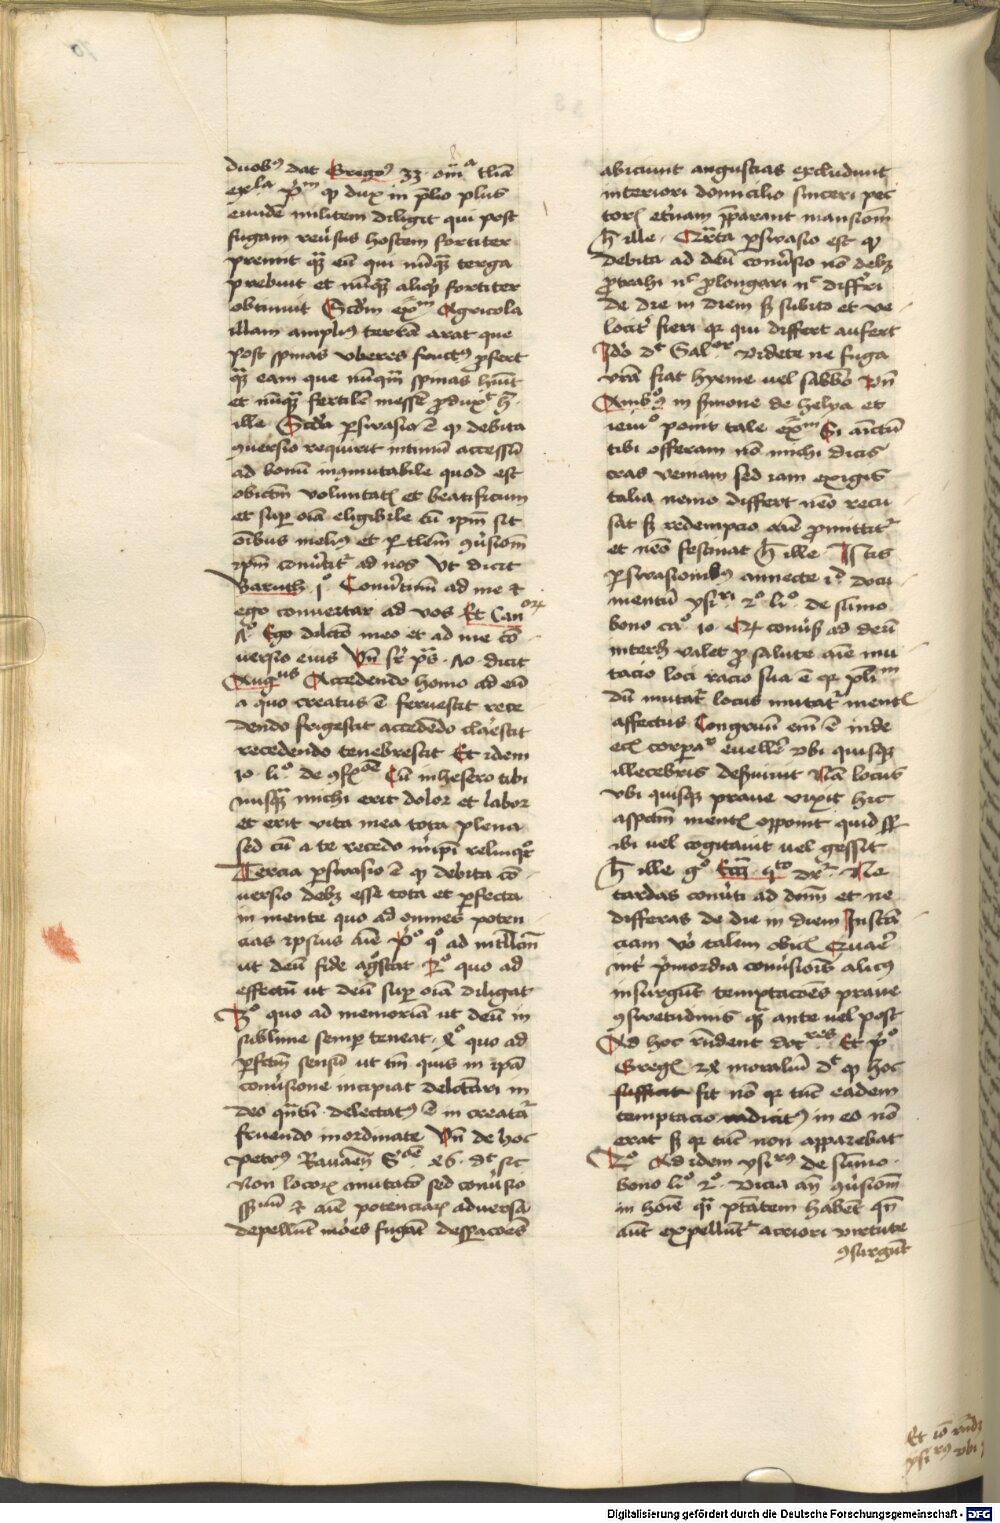 duobꝰ dat Gregoꝰ 33 omᵃ tliā
exˡᵃ pᵐ qꝫ dux in plio plus
eundē militem diligit qui post
fugam reūsus hostem fortiter
premit qꝫ eū qui nūqꝫ terga
prebuit et nūqꝫ aliqꝫ fortiter
obtinuit Scdm exᵐ Agricola
illam ampliꝰ terrā arat que
post spinas vberes fructꝰ pfert
qꝫ eam que nūqm̄ spinas hūit
et nūqꝫ fertilē messē pduxᵗ h̄
ille Scda pswasio ē qꝫ debita
ꝯuersio requirit intimū accessū
ad bonū inmutabile quod est
obiectm voluntatꝭ et beatificum
et sup oīa eligibile cū ipm sit
oībus meliꝰ et ꝑ tlem ꝯūsiom
ipm conūtitᷣ ad nos vt dicit
Baruch jᵒ Conūtimī ad me et
ego conuertar ad vos Et Canᵒʳ
Aᵒ Ego dilcto meo et ad me cō
uersio eius Vn̄ sr̄ ps̄ Ao dicit
Augᵘˢ Accedendo homo ad eū
a quo creatus ē feruescit rece
dendo frigescit accedēdo clarescit
recedendo tenebrescit Et idem
10 liᵒ de ꝯfᵒⁿᵉ Cū inhesero tibi
nusqꝫ michi erit dolor et labor
et erit vita mea tota plena
sed cū a te recedo m ipi relinqr
Tercia pswasio ē qꝫ debita cō
uersio debꝫ esse tota et pfecta
in mente quo ad omnes poten
cias ipsius aīe pᵒ qᵒ ad intllcm̄
ut deū fide agscat 2ᵒ quo ad
effectū ut deū sup oīa diligat
3ᵒ quo ad memoriā ut deū in
sublime semp teneat 4ᵒ quo ad
pfctm sensū ut tm̄ quis in ipā
conūsione incipiat delctari in
deo qntū delectatꝰ ē in creatᷣ
fruendo inordinate Vn̄ de hoc
petrꝰ Rauaen̄ Sᵒⁿᵉ 26 dᵗ sic
Non locorꝭ mutatō sed conūsio
et aīe potenciarꝭ aduersā
depellūt mōes fugāt despacoēs
abiciunt angustias excludunt
interiori domicilio sinceri pec
torꝭ etnam pparant mansiom
h̄ ille Qrta pswasio est qꝫ
debita ad deū conūsio nō debꝫ
ptrahi nᶜ plongari nᶜ diffri
de die in diem sꝫ subito et ve
locitꝰ fieri qꝛ qui differt aufert
Ido dᵗ Salᵒʳ videte ne fuga
vra fiat hyeme vel sabbō Vn̄
Ambꝰ in smone de helya et
ieiuᵒ ponit tale exᵐ Si aūctū
tibi offeram nō michi dicis
cras veniam sed iam exigis
talia nemo differt neō recu
sat sꝫ redempcio aīe pmittitᷣ
et neō festinat h̄ ille Istis
pswasionibꝰ annecte iᵐ docu
mentū ysiʳⁱ 2ᵒ liᵒ de sūmo
bono caᵒ 10 Qꝛ conūsꝰ ad deū
interꝫ valet p salute aīe mu
tacio loci racio sua ē qꝛ plīᵐ
dū mutatᷣ locus mutatᷣ mentꝭ
affectus Congruū enī ē inde
ecꝭ corpaᵗ euelle vbi quisqꝫ
illecebris deseruiuit Nā locus
vbi quisqꝫ praue vixit hic
aspctm mentꝭ opponit quid sꝑ
ibi vel cogitauit vel gessit
h̄ ille gᵒ Eccᵐ qᵗᵒ drᷣ Ne
tardas conūti ad dnm̄ et ne
differas de die in diem Instā
ciam vo talem obicꝭ Quare
int pmordia conūsiois alicꝰ
insurgūt temptacoēs praue
ꝯswetudinis qꝫ ante vel post
Ad hoc rn̄dent docʳᵉˢ Et pᵒ
Gregꝭ 24 moraliū dᵗ qꝫ hoc
sufficit fit nō qꝛ tūc eadem
temptacio radicitꝰ in eo nō
erat sꝫ qꝛ tūc non apparebat
2ᵒ Ad idem ysiʳꝰ de sūmo
bono liᵒ 2ᵒ Vicia an̄ ꝯūsiom
in hoīe qi ptātem habēt qn̄
aūt expellūtᷣ acriori virtute
ꝯsurgūt
Et iō rn̄dꝫ
ysiʳꝰ vbi
Digitalisierung gefördert durch die Deutsche Forschungsgemeinschaft - DFG